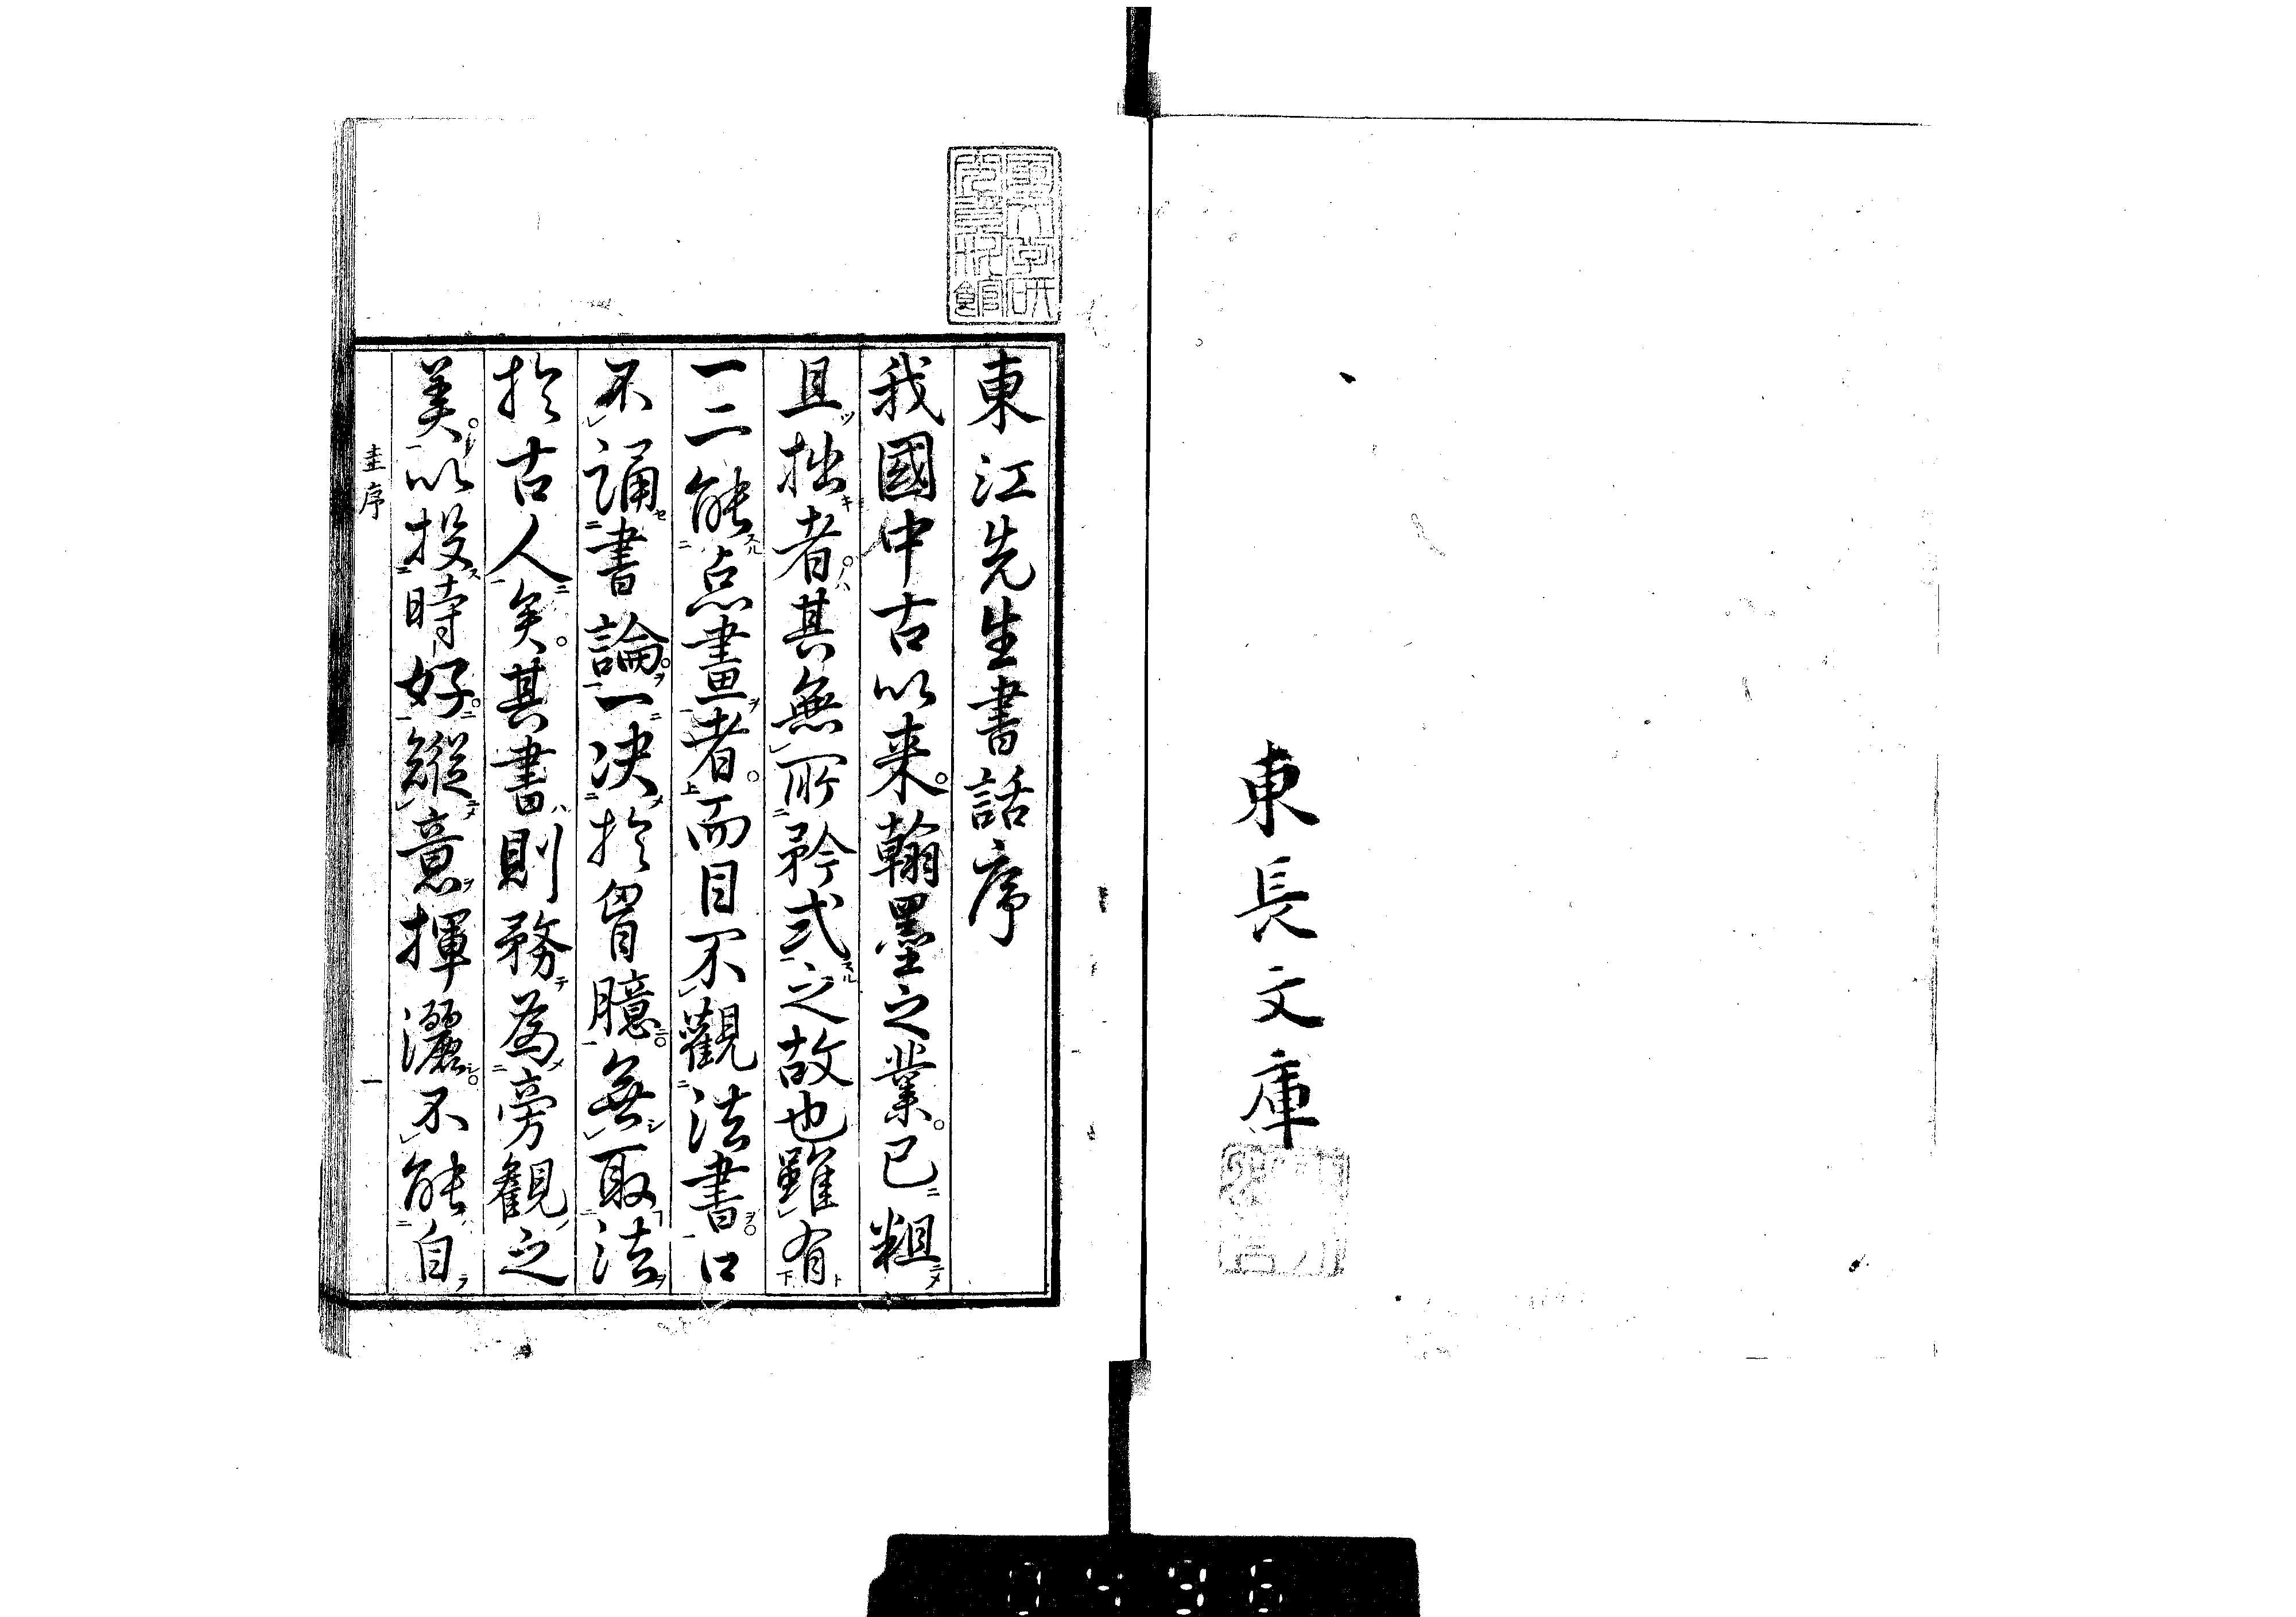 東長文庫
東江先生書話序
我國中古以来。翰墨之業。已粗
且拙者。其無所矜式之故也雖有
一二能点畫者。而目不觀法書。口
不誦書論。一决於胷臆。無取法
於古人矣。其書則務為旁觀之
美。以投時好。縱意揮灑。不能自
圭序
一